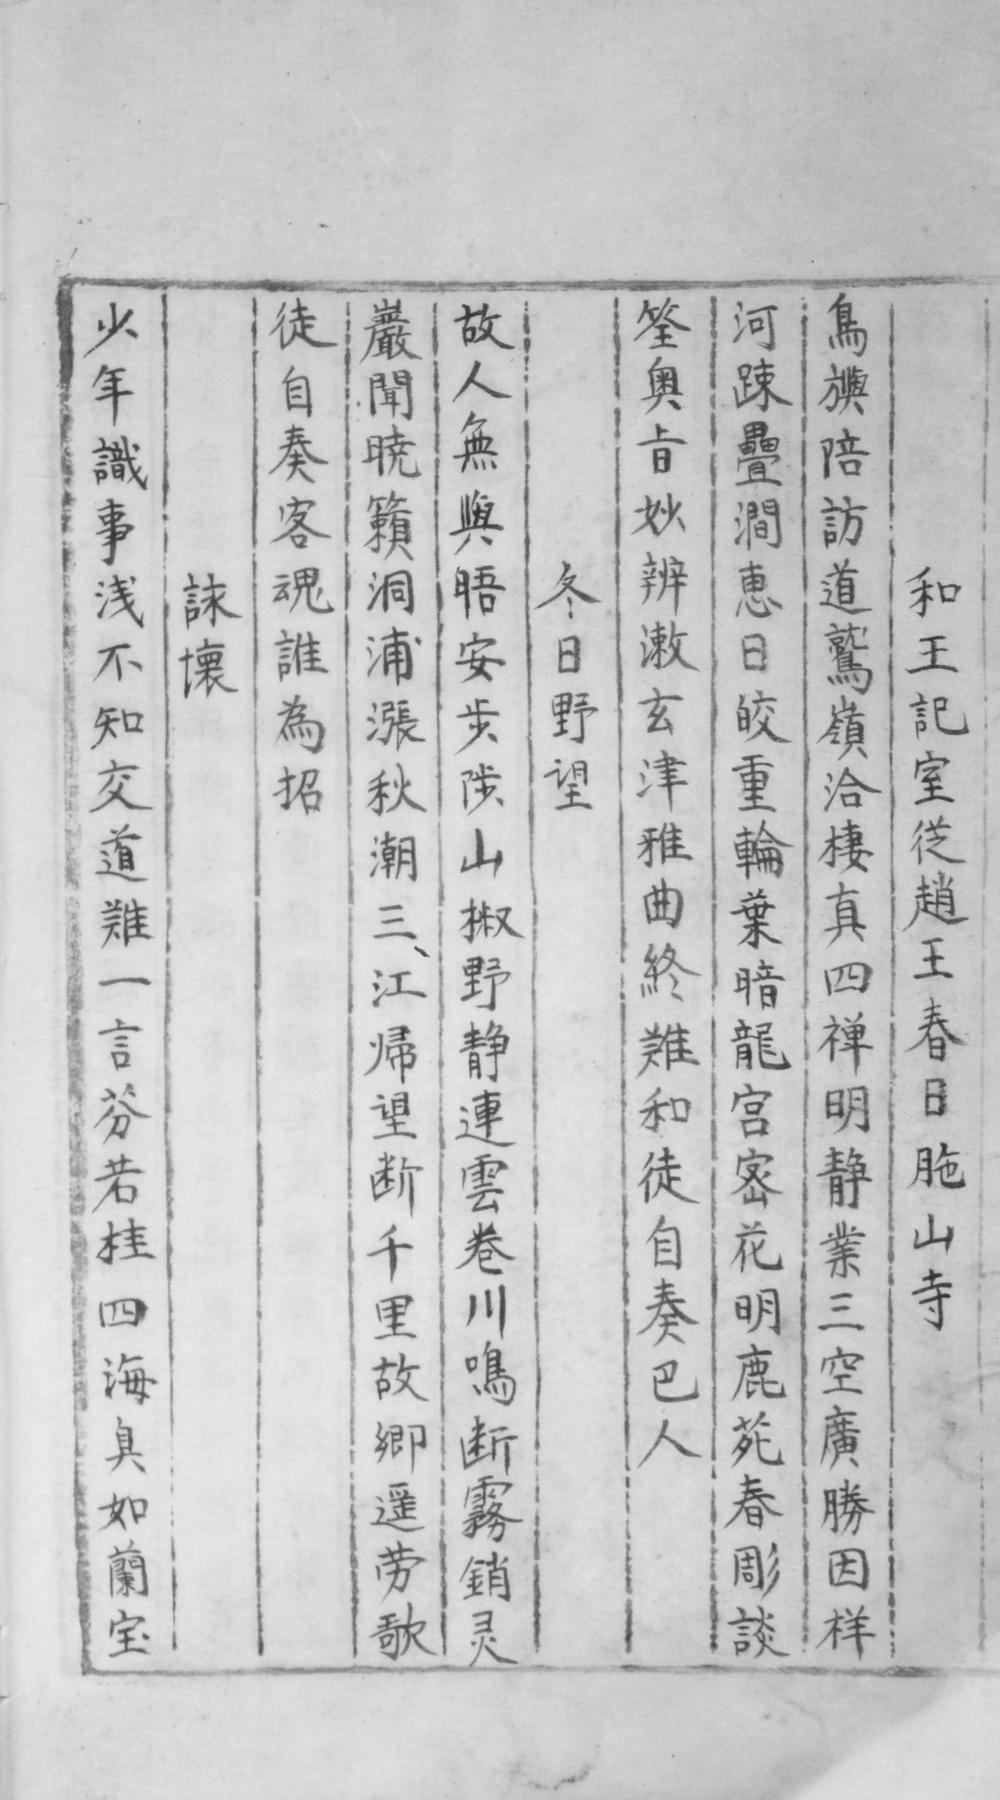 和王記室従趙王春日陁山寺
鳥旟陪訪道鷲嶺洽棲真四禅明静業三空廣勝因祥
河疎疊澗恵日皎重輪葉暗龍宮密花明鹿苑春彫談
筌奥旨妙辨漱玄津雅曲終難和徒自奏巴人
冬日野望
故人無與晤安歩陟山椒野静連雲巻川鳴断霧銷灵
巖聞暁籟洞浦漲秋潮三、江帰望断千里故郷遥労歌
徒自奏客魂誰為招
詠懐
少年識事浅不知交道難一言芬若桂四海臭如蘭宝